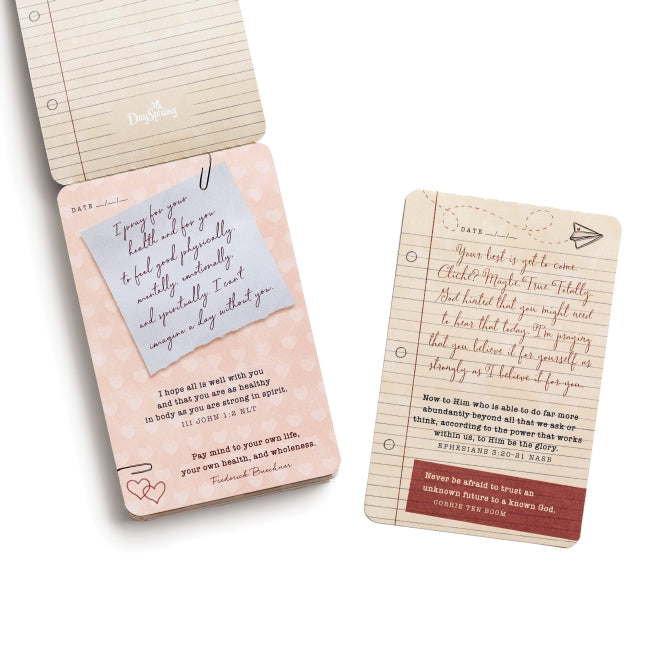 DaySpring
DATE __/__/__
I pray for your
health and for you
to feel good physically,
mentally, emotionally,
and spiritually. I can't
imagine a day without you.
I hope all is well with you
and that you are as healthy
in body as you are strong in spirit.
III JOHN 1:2 NLT
Pay mind to your own life,
your own health, and wholeness.
Frederick Buechner
DATE __/__/__
Your best is yet to come.
Cliché? Maybe. True? Totally.
God hinted that you might need
to hear that today. I'm praying
that you believe it for yourself as
strongly as I believe it for you.
Now to Him who is able to do far more
abundantly beyond all that we ask or
think, according to the power that works
within us, to Him be the glory.
EPHESIANS 3:20-21 NASB
Never be afraid to trust an
unknown future to a known God.
CORRIE TEN BOOM